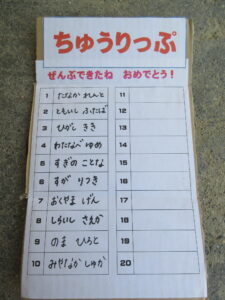 ちゅうりっぷ
ぜんぶできたね おめでとう！
1 たなか れんと
2 ともいし ふたば
3 ひがし きき
4 わたなべ ゆめ
5 すぎの ことな
6 すが りつき
7 おくやま げん
8 しらいし さえか
9 のま ひろと
10 みやなか しゅか
11
12
13
14
15
16
17
18
19
20